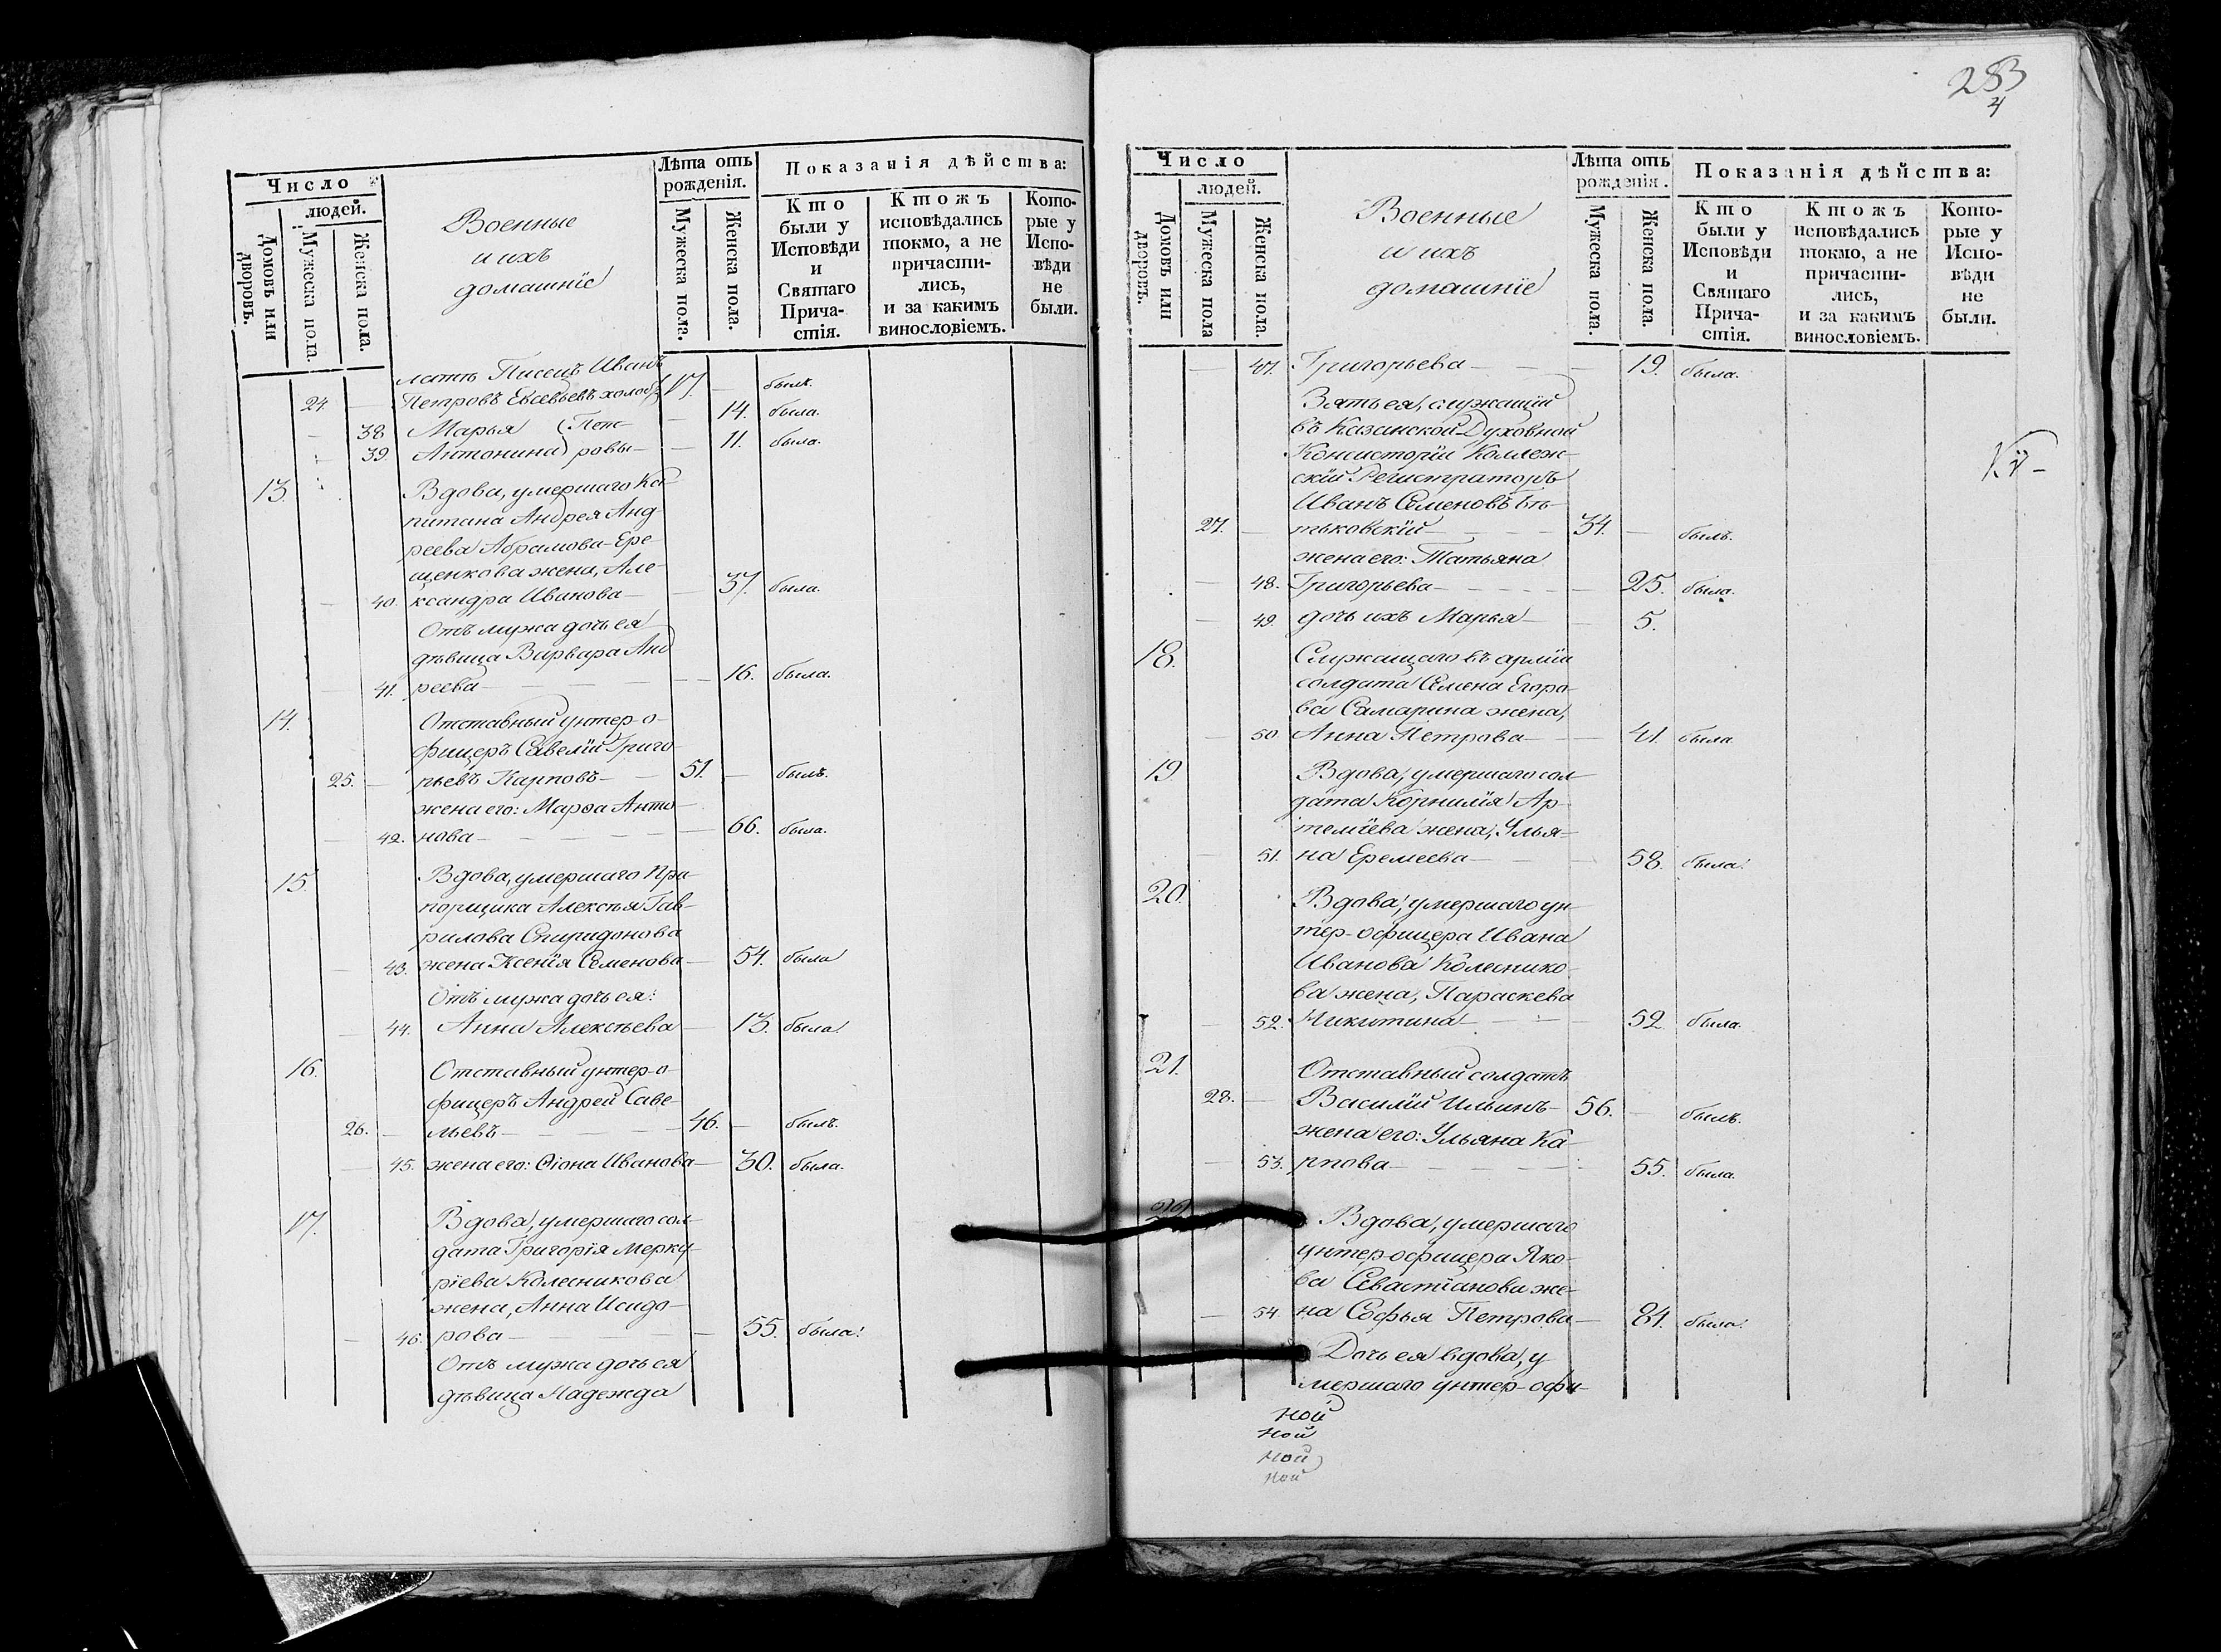 Число
людей.
Домовъ или дворовъ.
Мужеска пола.
Женска пола.
Военные
и ихъ
домашніе
Лѣта отъ
рожденія.
Мужеска пола.
Женска пола.
Показанія дѣйства:
Кто
были у
Исповѣди
и
Святаго
Прича-
стія.
Ктожъ
исповѣдались
токмо, а не
причасти-
лись,
и за какимъ
винословіемъ.
Кото-
рые у
Испо-
вѣди
не
были.
Писецъ Иванъ
24. — Петровъ Евсевьевъ холостъ 17. — былъ.
— 38 Марья (Пет- — 14. была.
— 39. Антонина) ровы — — 11. была.
13. Вдова, умершаго Ка-
питана Андрея Анд-
реева Абрамова-Ере-
щенкова жена, Але-
— 40. ксандра Иванова — — 37. была.
Отъ мужа дочь ея
дѣвица Варвара Анд
— 41. реева — — 16. была.
14. Отставный унтер-о-
фицеръ Савелій Григо-
25. — рьевъ Карповъ — 51. — былъ.
жена его: Марѳа Анто-
— 42. нова — — 66. была.
15. Вдова, умершаго Пра-
порщика Алексѣя Гав-
рилова Спиридонова
— 43. жена Ксенія Семенова — 54. была
Отъ мужа дочь ея:
— 44. Анна Алексѣева — 13. была
16. Отставный унтер-о-
фицеръ Андрей Саве-
26. — льевъ — 46. — былъ.
— 45. жена его: Ѳіона Иванова — 30. была.
17. Вдова, умершаго сол-
дата Григорія Мерку-
ріева Колесникова
жена, Анна Исидо-
— 46. рова — — 55. была.
Отъ мужа дочь ея
дѣвица Надежда
283
4
Число
людей.
Домовъ или дворовъ.
Мужеска пола
Женска пола.
Военные
и ихъ
домашніе
Лѣта отъ
рожденія.
Мужеска пола.
Женска пола.
Показанія дѣйства:
Кто
были у
Исповѣди
и
Святаго
Прича-
стія.
Ктожъ
исповѣдались
токмо, а не
причасти-
лись,
и за какимъ
винословіемъ.
Кото-
рые у
Испо-
вѣди
не
были.
— 47. Григорьева — — 19. была.
Зять ея, служащій
въ Казанской Духовной
Консисторіи Коллеж-
скій Регистраторъ
Иванъ Семеновъ Бѣ-
27. — тьковскій — 34. — былъ.
жена его: Татьяна
— 48. Григорьева — — 25. была.
— 49. дочь ихъ Марья — — 5.
18. Служащаго въ арміи
солдата Семена Егоро-
ва Самарина жена,
— 50 Анна Петрова — — 41. была.
19. Вдова, умершаго сол-
дата Корнилія Ар-
теміева жена, Улья-
— 51. на Еремеева — — 58. была.
20. Вдова, умершаго ун-
тер-офицера Ивана
Иванова Колеснико-
ва жена, Параскева
— 52. Никитина — — 52. была.
21. Отставный солдатъ
28. — Василій Ильинъ — 56. — былъ.
жена его: Ульяна Ка-
— 53. рпова — — 55. была.
22. Вдова, умершаго
унтер-офицера Яко-
ва Севастіанова же-
— 54. на Софья Петрова — 84. была.
Дочь ея вдова, у
мершаго унтер-офи-
ной
ной
ной
ной